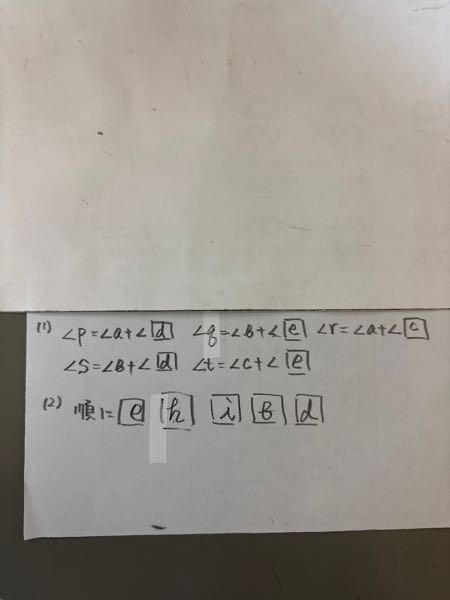 (1) ∠p=∠a+∠d ∠q=∠b+∠e ∠r=∠a+∠c
∠s=∠b+∠d ∠t=∠c+∠e
(2) 順に e h i b d